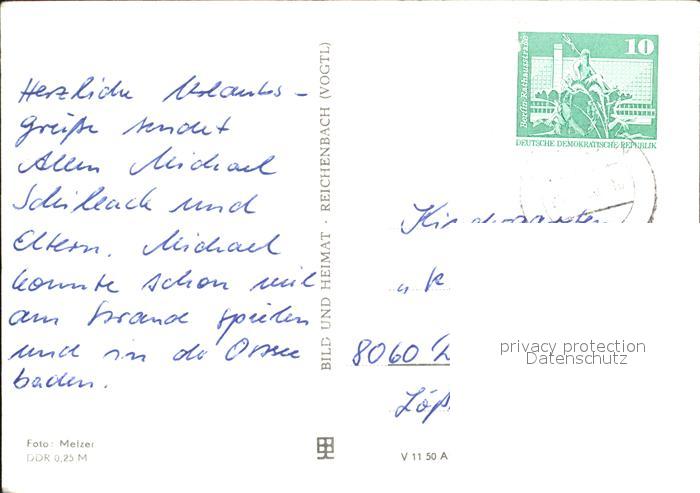 Herzliche Urlaubs-
grüße sendet
Allen Michael
und
Eltern. Michael
konnte schon viel
am Strand spielen
und in der Ostsee
baden.
Foto: Melzer
DDR 0,25 M
BILD UND HEIMAT · REICHENBACH (VOGTL)
V 11 50 A
Berlin-Rathausstraße
10
DEUTSCHE DEMOKRATISCHE REPUBLIK
Kindergarten
u. K
8060
Löß
privacy protection
Datenschutz